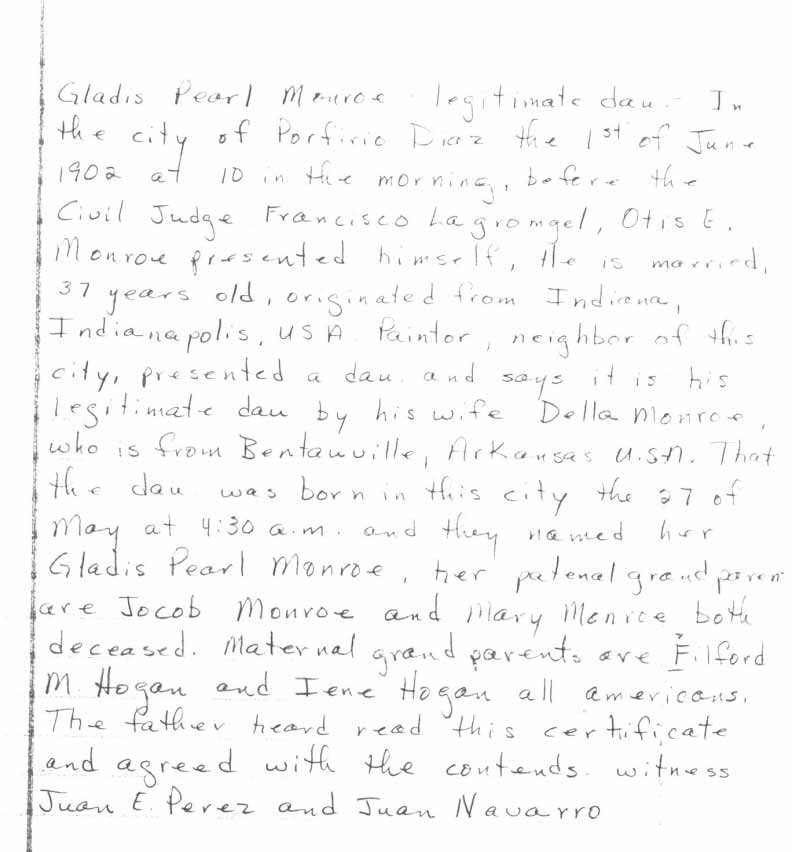 Gladis Pearl Monroe - legitimate dau. - In
the city of Porfirio Diaz the 1st of June
1902 at 10 in the morning, before the
Civil Judge Francisco Lagromgel, Otis E.
Monroe presented himself, He is married,
37 years old, originated from Indiana,
Indianapolis, USA. Paintor, neighbor of this
city, presented a dau. and says it is his
legitimate dau by his wife Della Monroe,
who is from Bentanville, Arkansas U.S.A. That
the dau was born in this city the 27 of
May at 4:30 a.m. and they named her
Gladis Pearl Monroe, her patenal grand paren
are Jocob Monroe and Mary Monroe both
deceased. Maternal grand parents are ? Filford
M. Hogan and Iene Hogan all americans.
The father heard read this certificate
and agreed with the contends. witness
Juan E. Perez and Juan Navarro